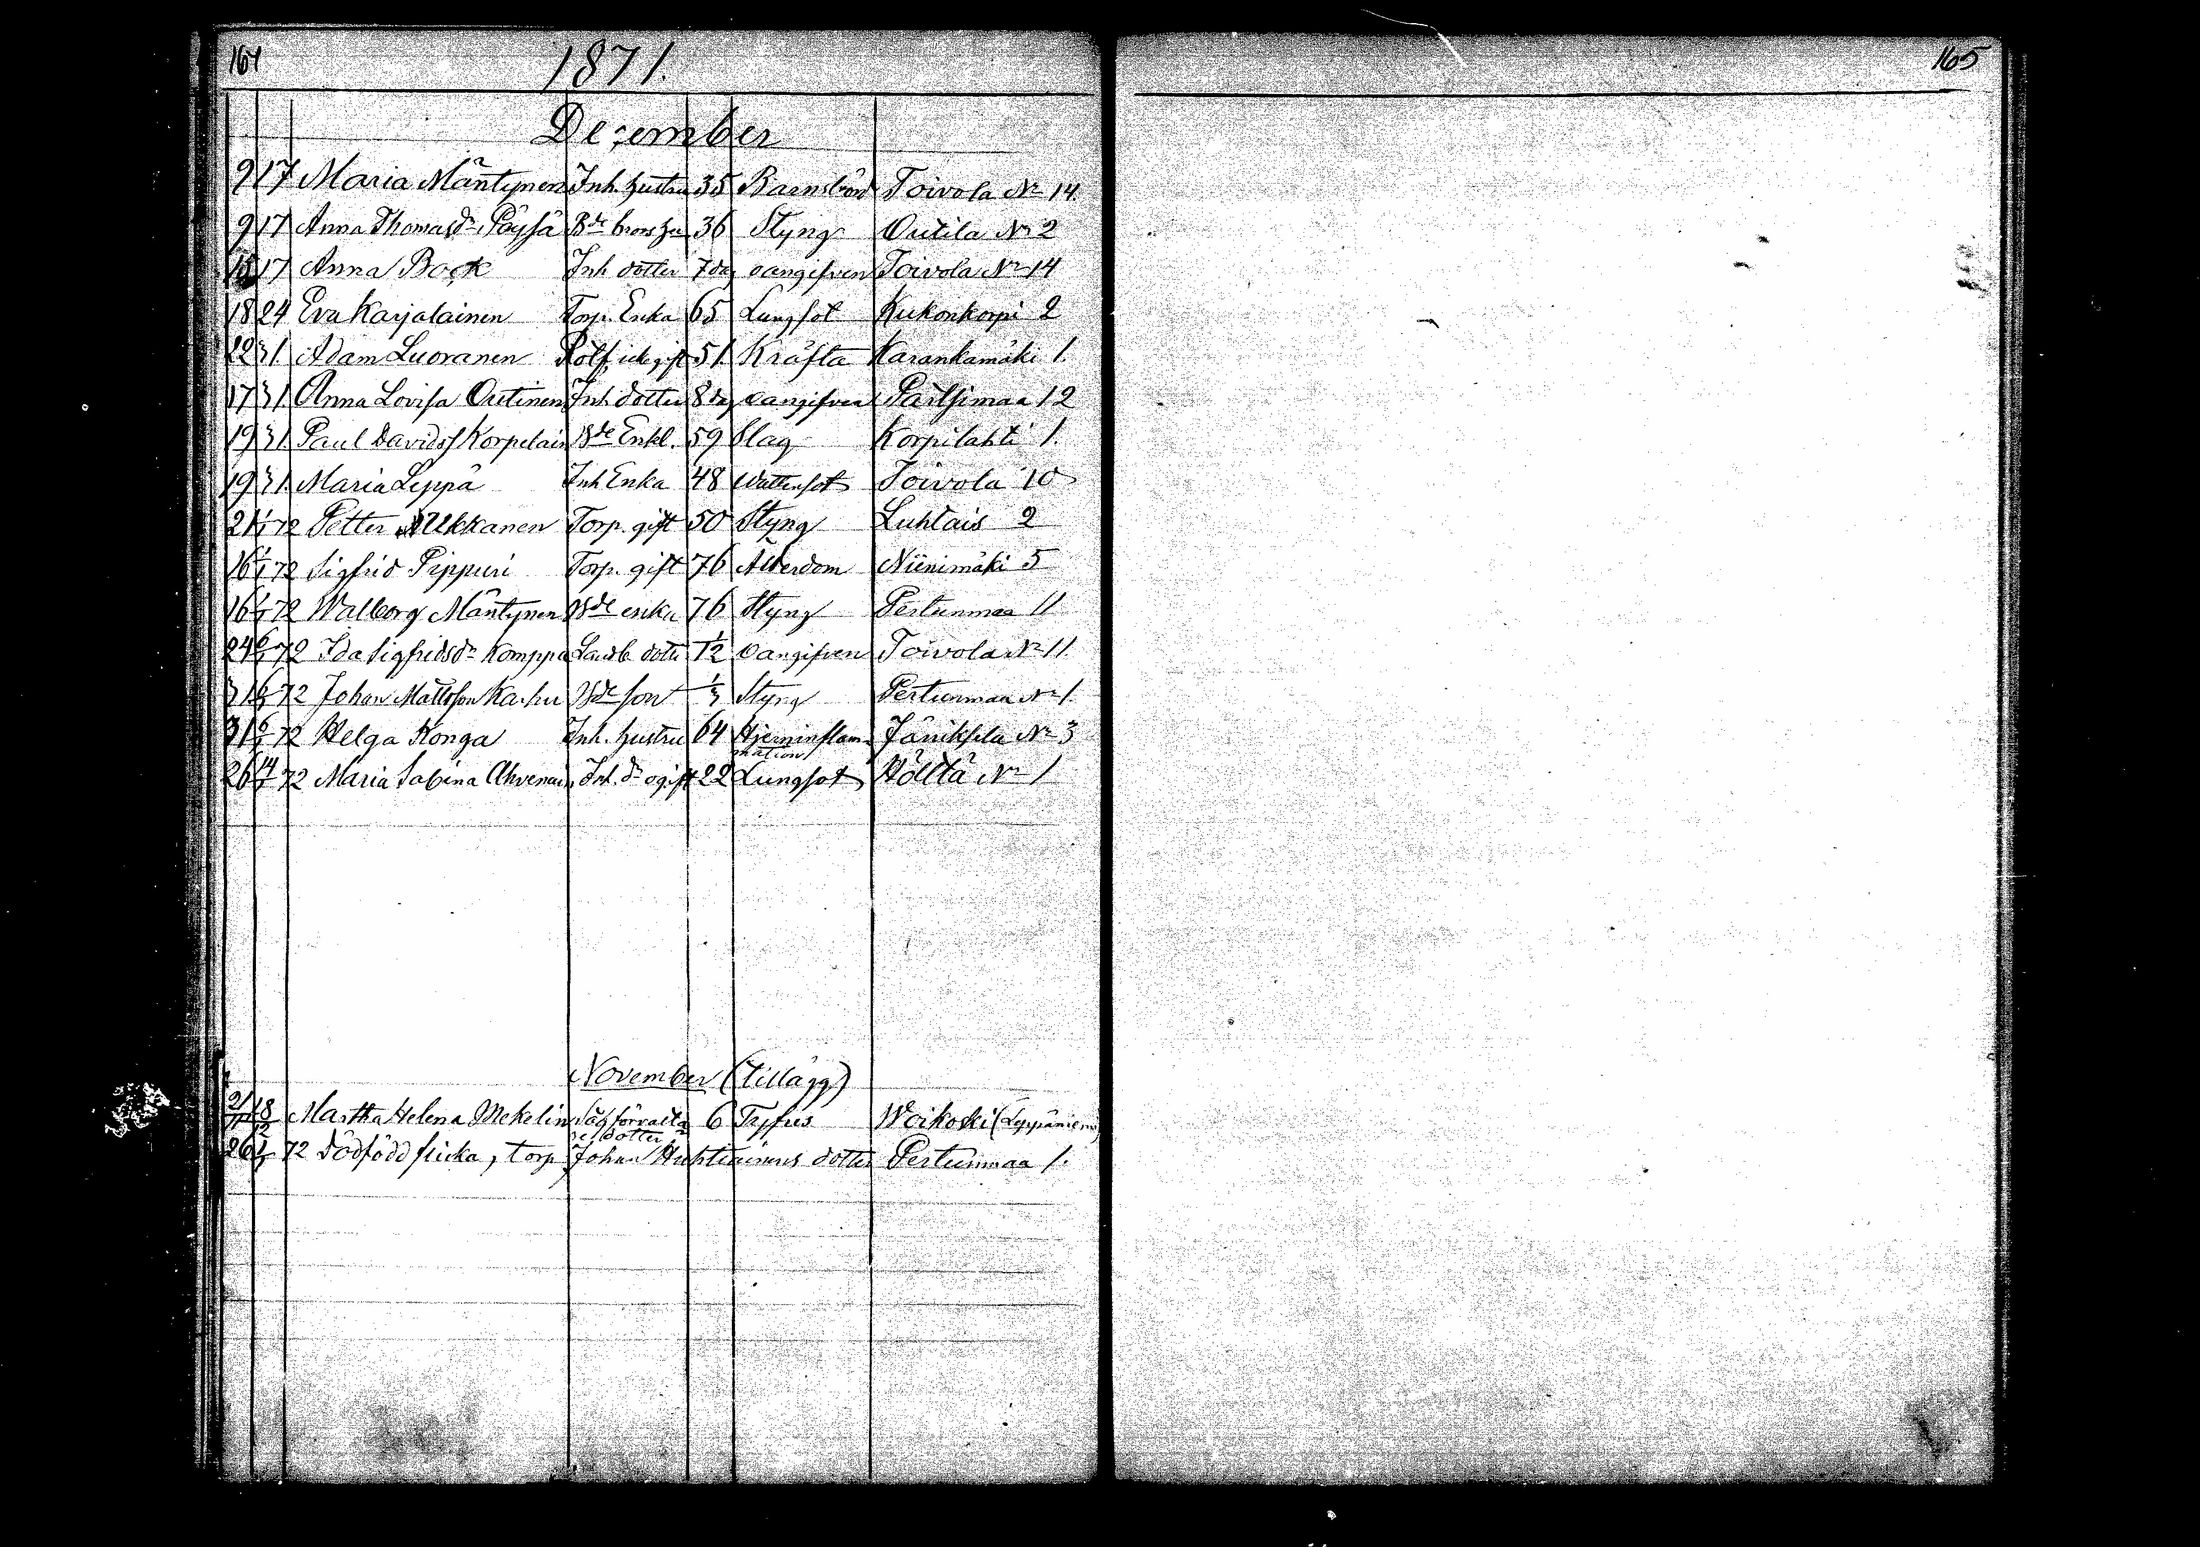 164 1871. 165
December
9 17 Maria Mäntynen Inh. hustru 35 Barnsbörd Toivola No 14.
9 17 Anna Thomasdr Päyhä Bde brors hu 36 Styng Outila No 2
15 17 Anna Bock Inh dotter 7 dag oangifven Toivola No 14
18 24 Eva Karjalainen Torp. Enka 65 Lungsot Kukonkorpi 2
22 31 Adam Luoranen Rotf. ick. gift 51 Kräfta Karankamäki 1.
17 31 Anna Lovisa Outinen Inh dotter 8 dag oangifven Pärtsimaa 12
19 31 Paul Davidss Korpelain Bde Enkl. 59 Slag Korpilahti 1.
19 31 Maria Leppä Inh Enka 48 Wattensot Toivola 10
21 1/1 72 Petter Ukkanen Torp. gift 50 Styng Luhtais 2
16 1/1 72 Sigfrid Pippuri Torp. gift 76 Ålderdom Niinimäki 5
16 6/1 72 Walborg Mäntynen Bde enka 76 Styng Pertunmaa 11
24 6/1 72 Ida Sigfridsdr Komppa Landb. dotter 1/12 oangifven Toivola No 11.
31 6/1 72 Johan Mattsson Karhu Bde son 1/3 Styng Pertunmaa No 1.
31 6/1 72 Helga Konga Inh. hustru 64 Hjerninflam-
mation Jäniksela No 3
26 14/1 72 Maria Sabina Ahvenain. Inh. dr ogift 22 Lungsot Hölttä No 1
November (tillägg)
21/11 18/12 Martha Helena Mekelin Sågförvalta
res dotter 6 Tyfus Woikoski (Leppäniemi)
26 72 dödfödd flicka, torp Johan Huhtiainens dotter Pertunmaa 1.